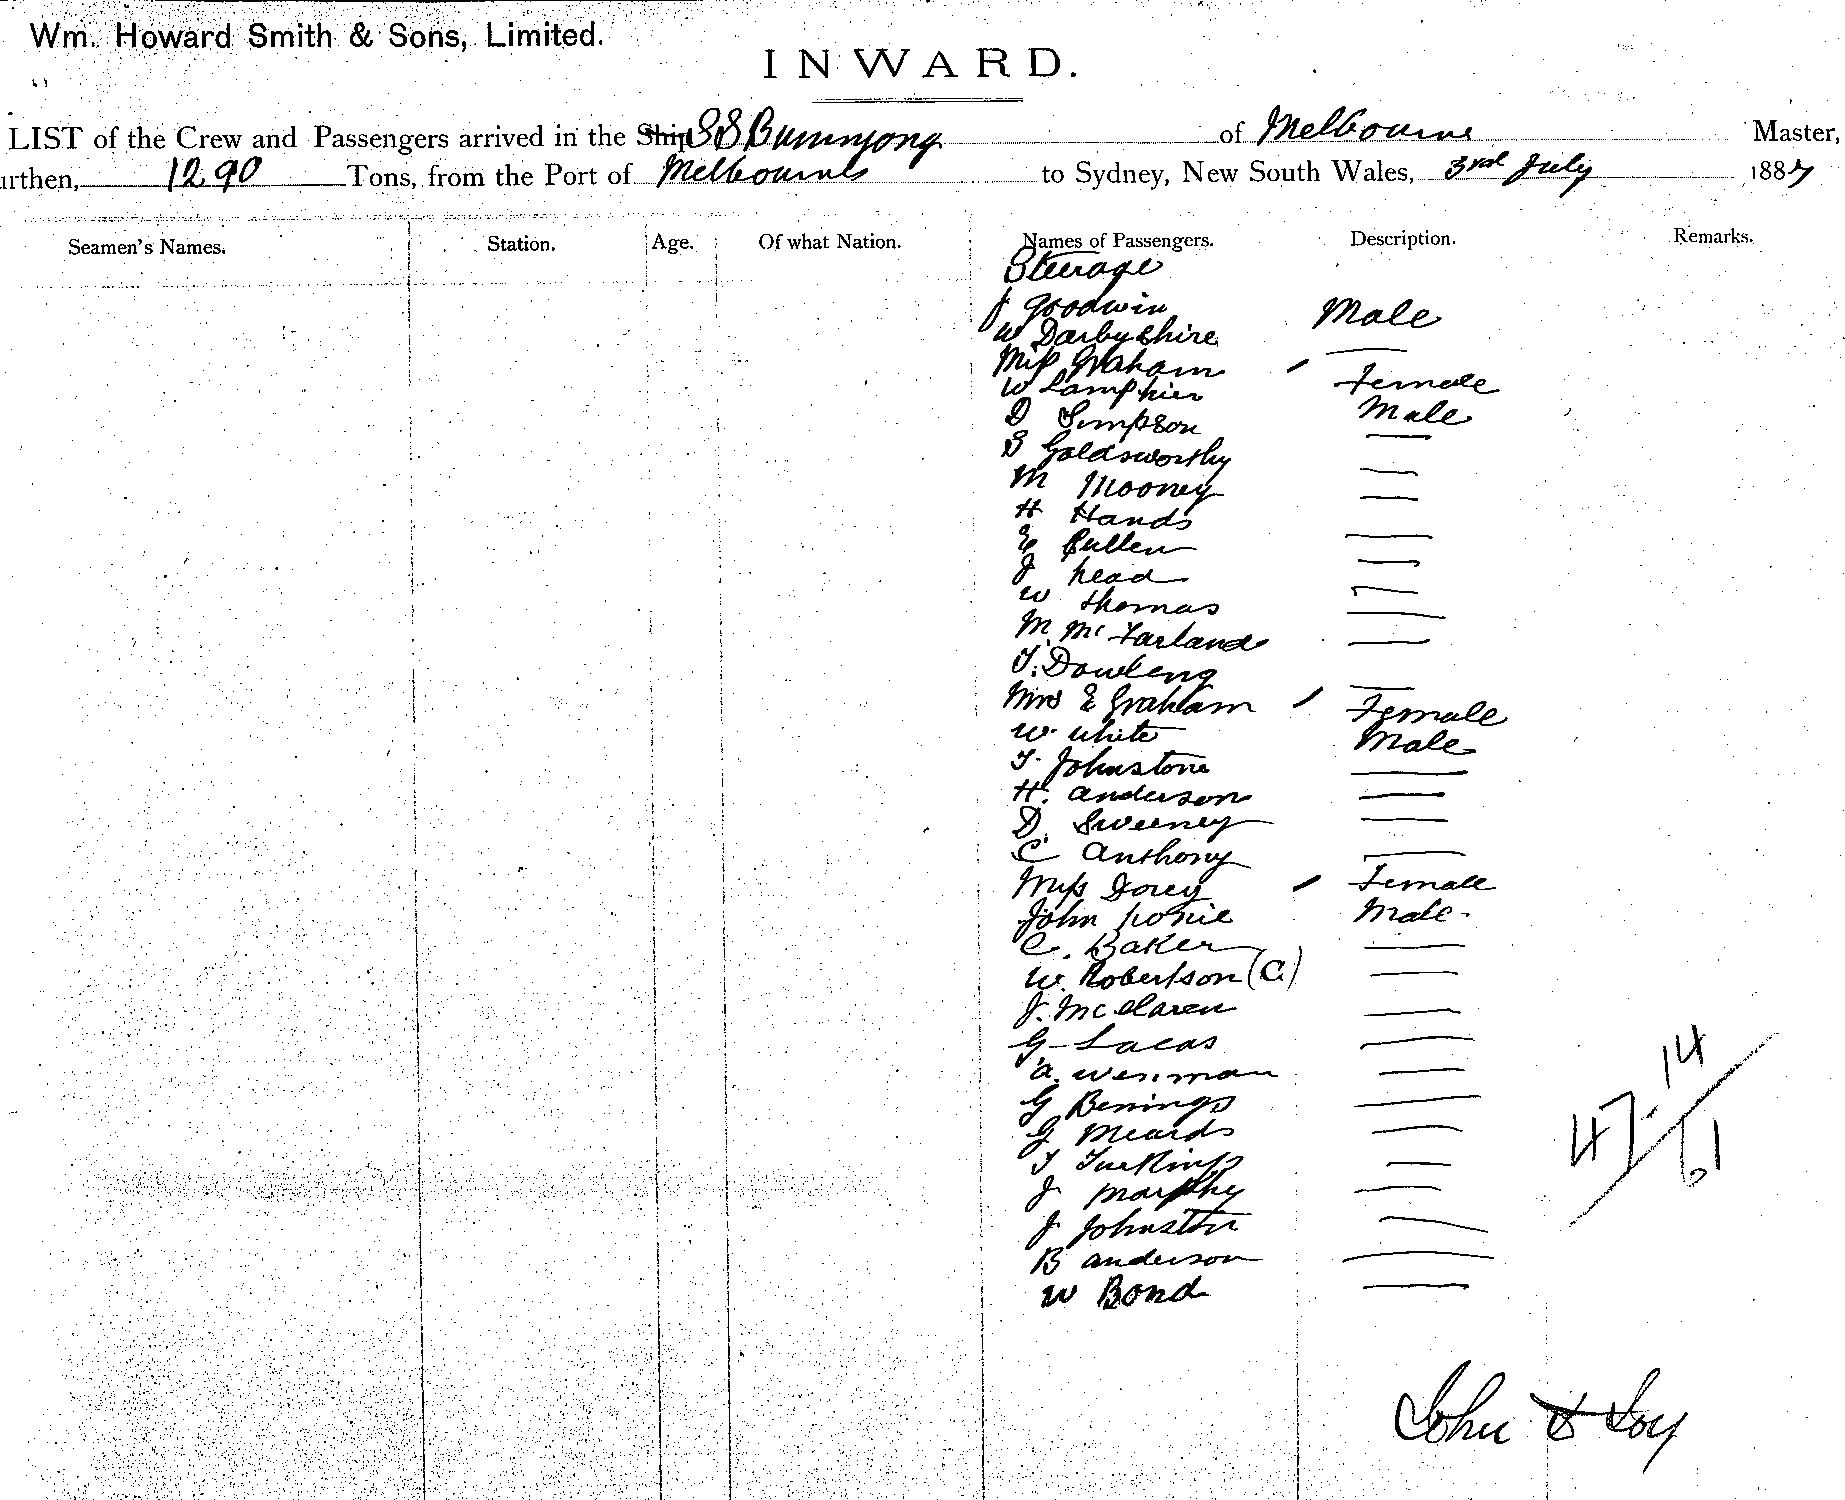 Wm. Howard Smith & Sons, Limited.
INWARD.
LIST of the Crew and Passengers arrived in the Ship SS Buninyong of Melbourne Master,
urthen, 1290 Tons, from the Port of Melbourne to Sydney, New South Wales, 3rd July 1887
Seamen's Names. Station. Age. Of what Nation. Names of Passengers. Description. Remarks.
Steerage
J Goodwin Male
W Darbyshire —
Miss Graham Female
W Lamphier Male
D Simpson —
S Goldsworthy —
M Mooney —
H Hands —
E Cullen —
J Head —
W Thomas —
M McFarland —
T. Dowling —
Mrs E Graham Female
W. White Male
T. Johnstone —
H. Anderson —
D. Sweeney —
C Anthony —
Miss Dorey Female
John Male.
C. Baker —
W. Robertson (C) —
J. McClaren —
G Lucas —
A. Wenman —
G Bennings —
G Meards —
T —
J Murphy —
J Johnston —
B Anderson —
W Bond —
14
47
61
John